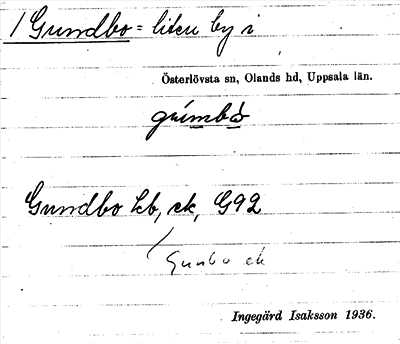 1 Gundbo = liten by i
Österlövsta sn, Olands hd, Uppsala län.
gúmbò
Gundbo kb, ek, G92
Gunbo ek
Ingegärd Isaksson 1936.